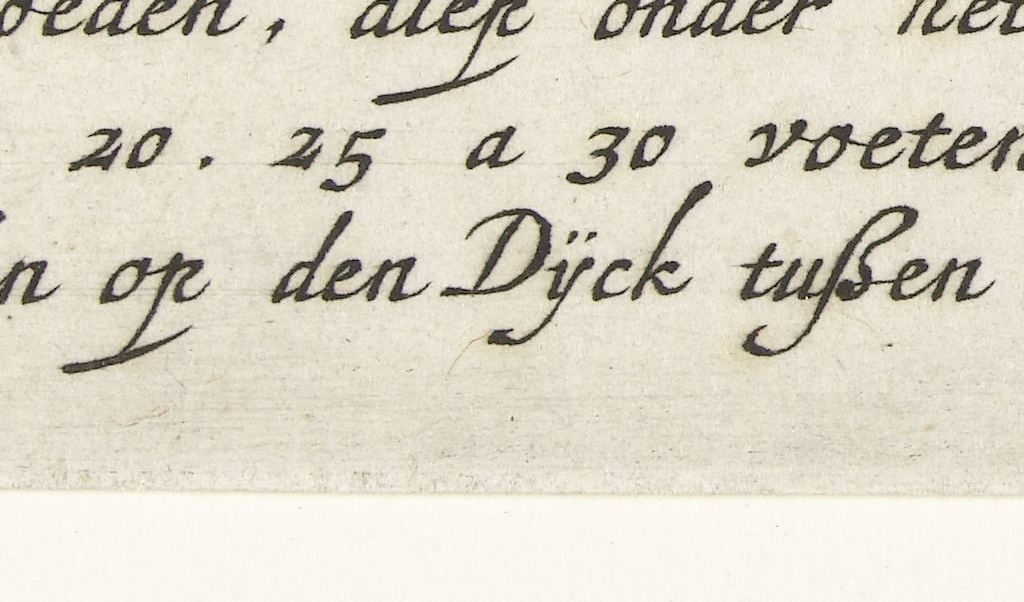 oeden, diep onder het
20. 25 a 30 voeten
n op den Dÿck tußen